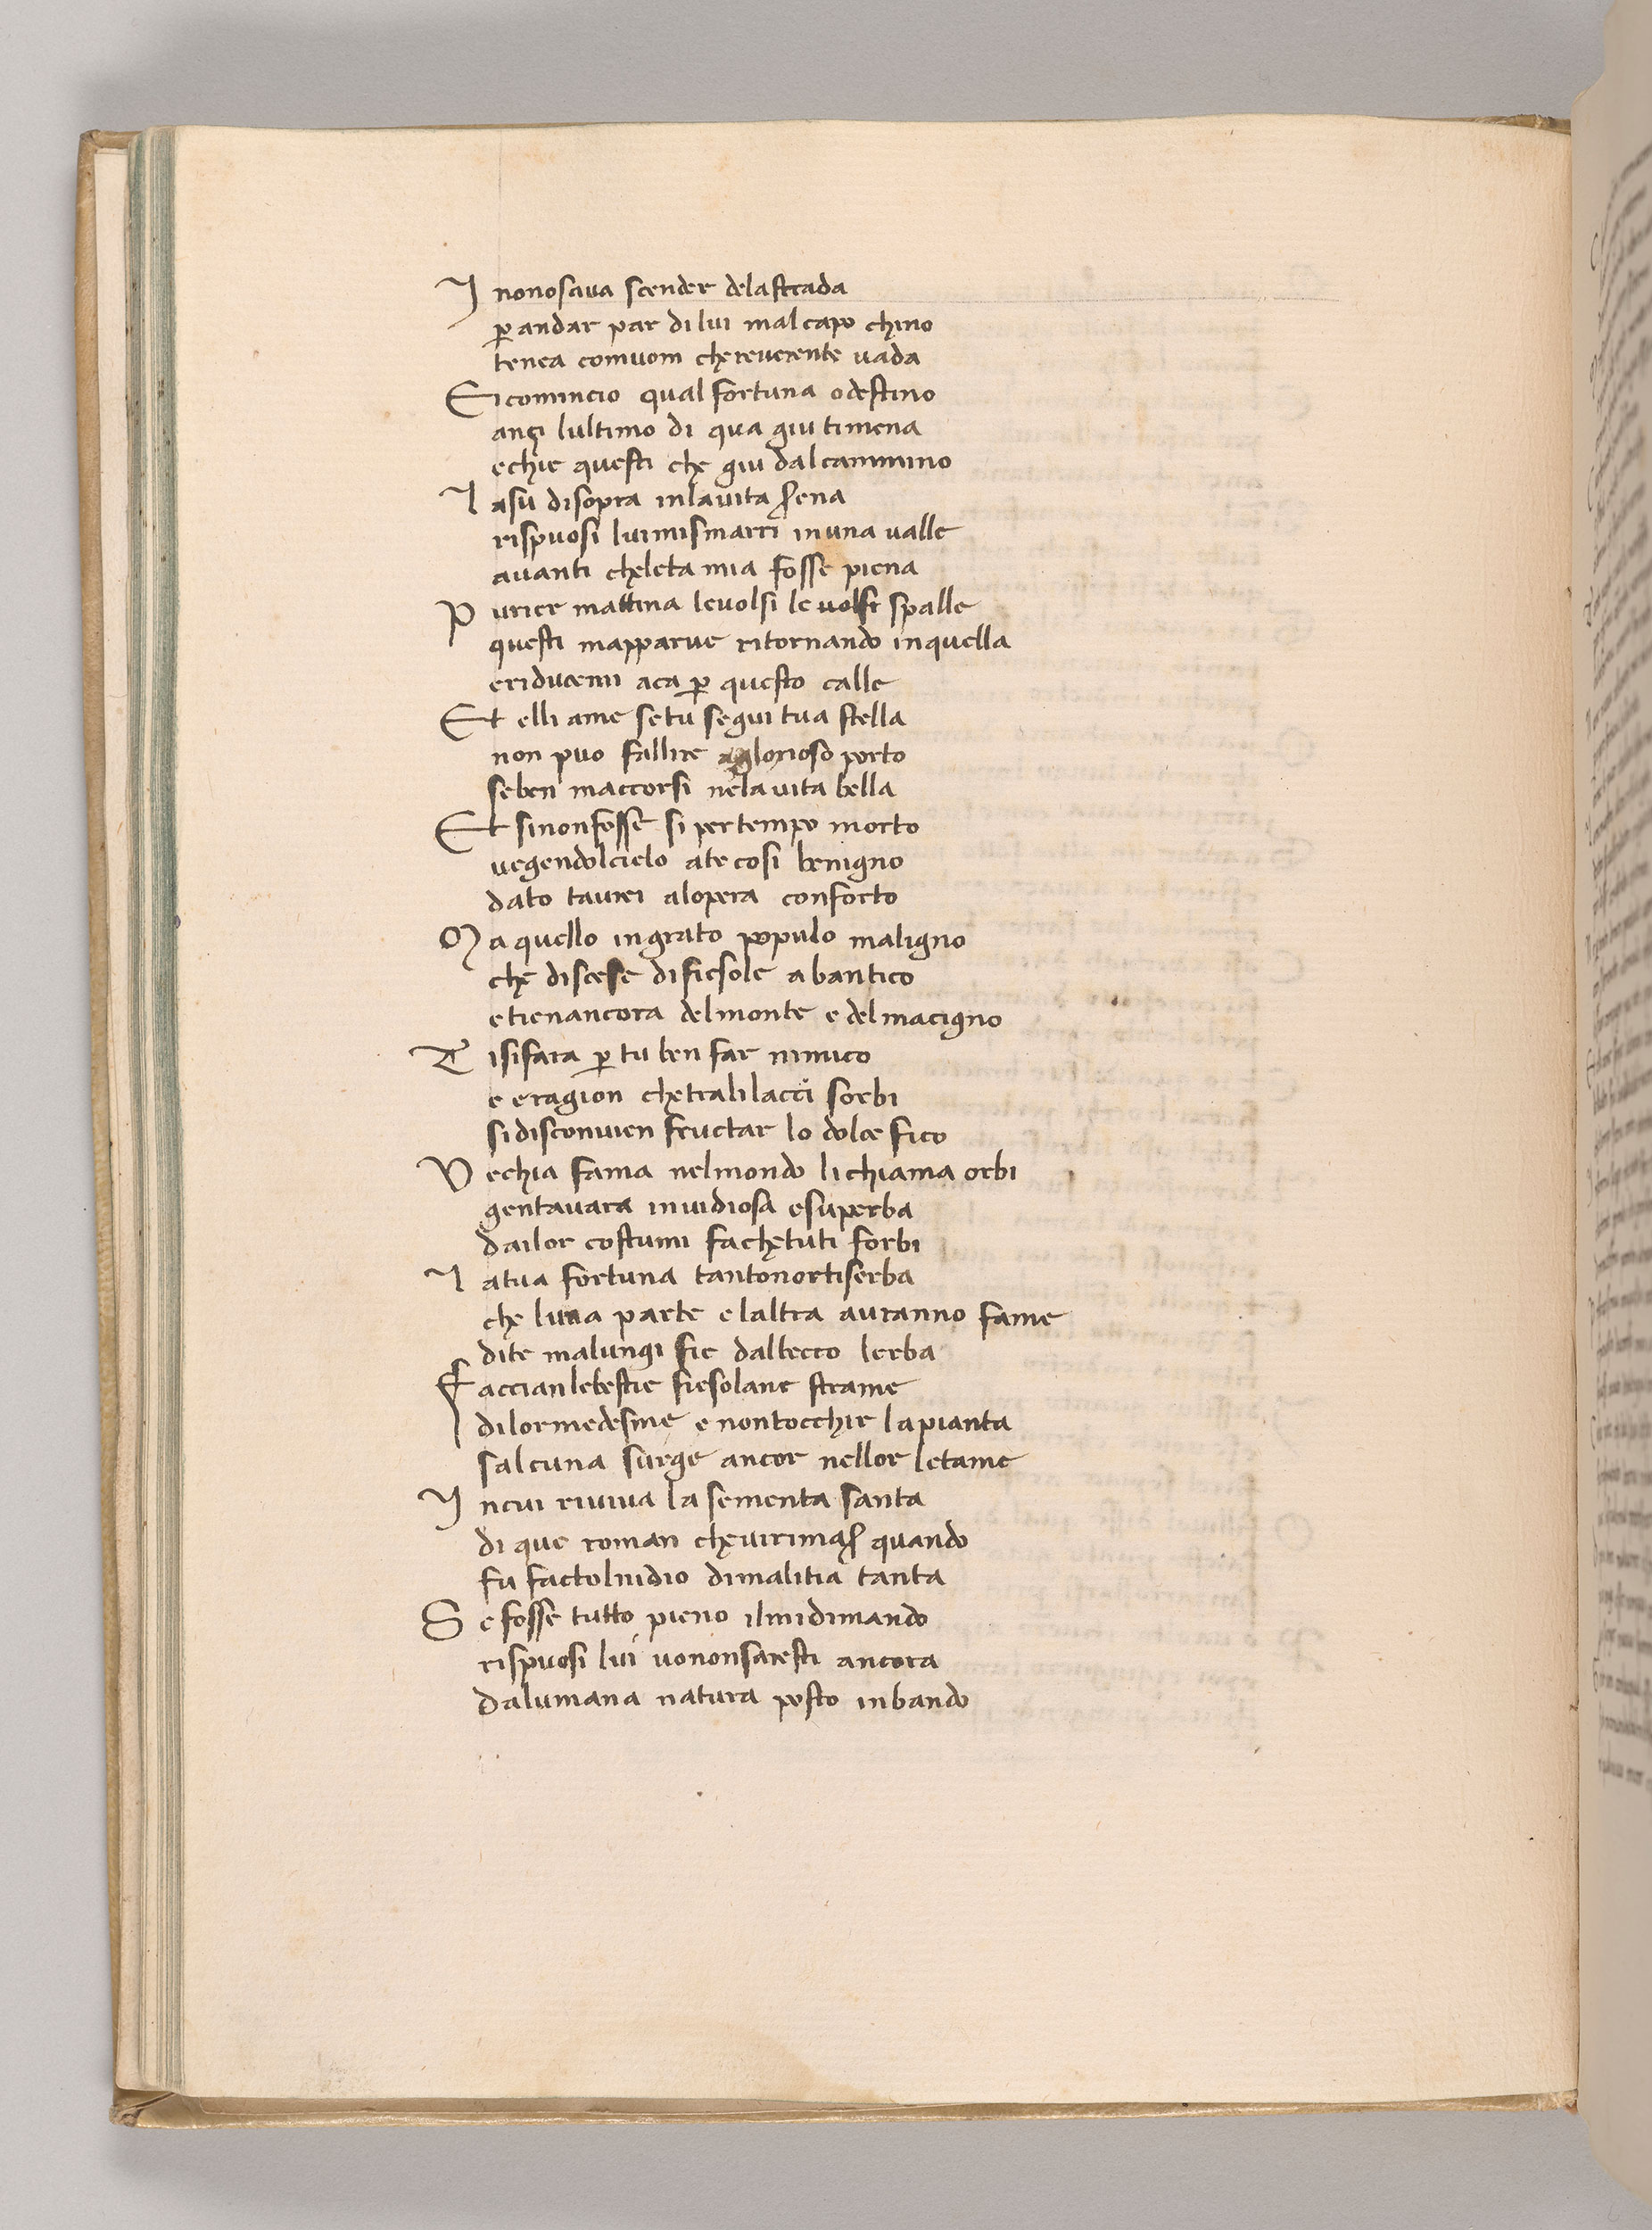 I nonosava scender delastrada
ꝑ andar par di lui mal capo chino
tenea comuom chereverente vada
Ei comincio qual fortuna odestino
ançi lultimo di qua giu timena
echie questi che giu dalcammino
L asu disopra inlavita serena
rispuosi lui mismarri inuna valle
avanti cheleta mia fosse piena
P urier mattina levolsi le volsi spalle
questi mapparve ritornando inquella
eriducemi aca ꝑ questo calle
Et elli ame setu segui tua stella
non puo fallire a glorioso porto
seben maccorsi nela vita bella
Et sinonfosse si per tempo morto
vegendolcielo ate cosi benigno
dato taurei alopera conforto
M a quello ingrato populo maligno
che discese difiesole abantico
etienancora delmonte e delmacigno
T isifara ꝑ tu ben far nimico
e eragion chetralilacci sorbi
sidisconvien fructar lo dolce fico
V echia fama nelmondo lichiama orbi
gentavara invidiosa esuperba
dailor costumi fachetuti forbi
L atua fortuna tantonortiserba
che luna parte elaltra auranno fame
dite malungi fie dalbecco lerba
F accianlebestie fiesolane strame
dilormedesme e nontocchir lapianta
salcuna surge ancor nellor letame
I ncui riviva la sementa santa
di que roman chevirimaser quando
fu factolnidio dimalitia tanta
S e fosse tutto pieno ilmidimando
rispuosi lui vononsaresti ancora
dalumana natura posto inbando